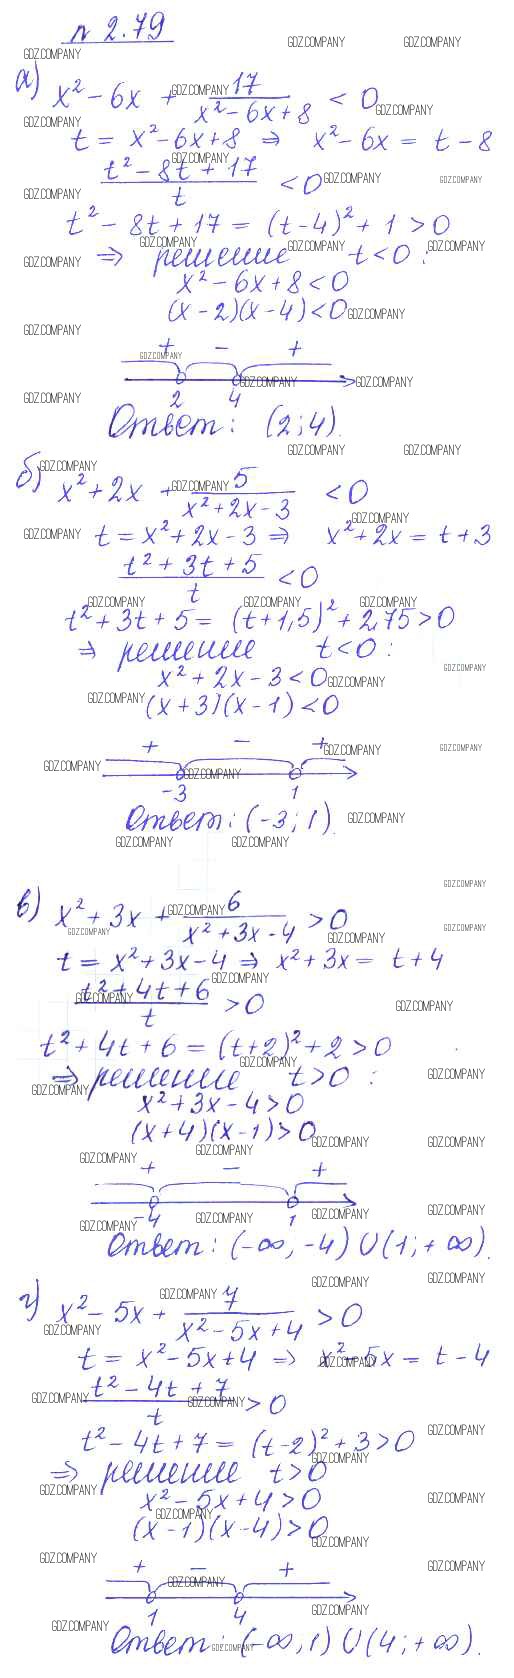 n 2.79
а) x² – 6x + 17/(x² – 6x + 8) < 0
t = x² – 6x + 8 ⇒ x² – 6x = t – 8
(t² – 8t + 17)/t < 0
t² – 8t + 17 = (t – 4)² + 1 > 0
⇒ решение t < 0 :
x² – 6x + 8 < 0
(x – 2)(x – 4) < 0
+ – +
2 4
Ответ: (2; 4).
б) x² + 2x + 5/(x² + 2x – 3) < 0
t = x² + 2x – 3 ⇒ x² + 2x = t + 3
(t² + 3t + 5)/t < 0
t² + 3t + 5 = (t + 1,5)² + 2,75 > 0
⇒ решение t < 0 :
x² + 2x – 3 < 0
(x + 3)(x – 1) < 0
+ – +
–3 1
Ответ: (–3; 1).
в) x² + 3x + 6/(x² + 3x – 4) > 0
t = x² + 3x – 4 ⇒ x² + 3x = t + 4
(t² + 4t + 6)/t > 0
t² + 4t + 6 = (t + 2)² + 2 > 0
⇒ решение t > 0 :
x² + 3x – 4 > 0
(x + 4)(x – 1) > 0
+ – +
–4 1
Ответ: (–∞, –4) ∪ (1; +∞).
г) x² – 5x + 7/(x² – 5x + 4) > 0
t = x² – 5x + 4 ⇒ x² – 5x = t – 4
(t² – 4t + 7)/t > 0
t² – 4t + 7 = (t – 2)² + 3 > 0
⇒ решение t > 0
x² – 5x + 4 > 0
(x – 1)(x – 4) > 0
+ – +
1 4
Ответ: (–∞, 1) ∪ (4; +∞).
GDZ.COMPANY